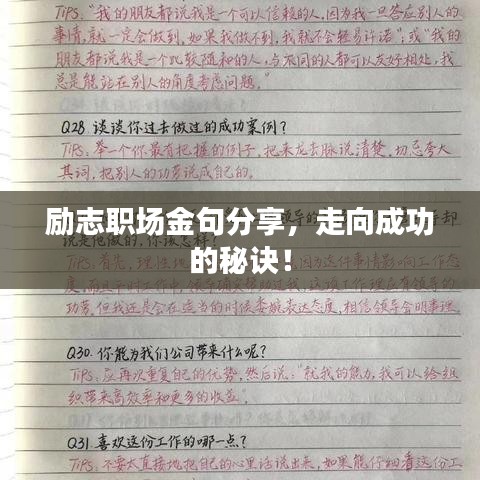 TIPS: "我的朋友都说我是一个可以信赖的人,因为我一旦答应别人的
事情,就一定会做到,如果我做不到,我就不会轻易许诺";或"我的
朋友都说我是一个比较随和的人,与不同的人都可以友好相处,我
总是能站在别人的角度考虑问题。
Q28. 谈谈你过去做过的成功案例?
TIPS: 举一个你最有把握的例子,把来龙去脉说清楚,切忌夸大
其词,把别人的功劳说成自己的。
励志职场金句分享,走向成功
的秘诀!
功劳,但我还是会在适当的时候委婉表达态度,相信领导会明事理
Q30. 你能为我们公司带来什么呢?
TIPS: 应再次重复自己的优势,然后说:"就我的能力,我可以给组
织带来高效率和更多的收益。
Q31. 喜欢这份工作的哪一点?
TIPS: 不要太直接地把自己的心里话说出来,如果能仔细看这份工